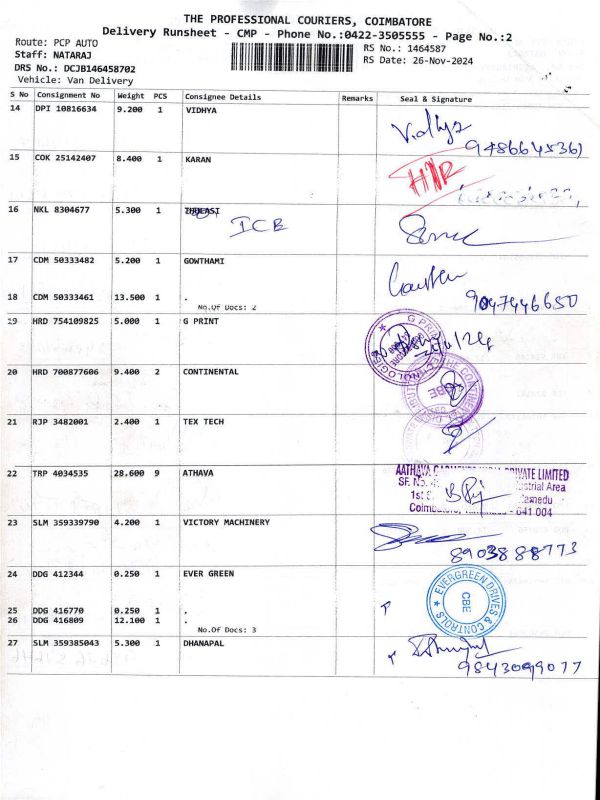 THE PROFESSIONAL COURIERS, COIMBATORE
Delivery Runsheet - CMP - Phone No.:0422-3505555 - Page No.:2
Route: PCP AUTO
RS No.: 1464587
Staff: NATARAJ
RS Date: 26-Nov-2024
DRS No.: DCJB146458702
Vehicle: Van Delivery
S No Consignment No Weight PCS Consignee Details Remarks Seal & Signature
14 DPI 10816634 9.200 1 VIDHYA Vidhya
15 COK 25142407 8.400 1 KARAN
16 NKL 8304677 5.300 1
ICB
17 CDM 50333482 5.200 1 GOWTHAMI
9047446650
18 CDM 50333461 13.500 1 .
No.Of Docs: 2
19 HRD 754109825 5.000 1 G PRINT
20 HRD 700877606 9.400 2 CONTINENTAL
CBE
21 RJP 3482001 2.400 1 TEX TECH
22 TRP 4034535 28.600 9 ATHAVA
AATHAVA PRIVATE LIMITED
SF. No. Industrial Area
641 004
23 SLM 359339790 4.200 1 VICTORY MACHINERY
8903888773
24 DDG 412344 0.250 1 EVER GREEN
EVERGREEN DRIVES & CONTROLS
CBE
25 DDG 416770 0.250 1 .
26 DDG 416809 12.100 1 .
No.Of Docs: 3
27 SLM 359385043 5.300 1 DHANAPAL
9843099077